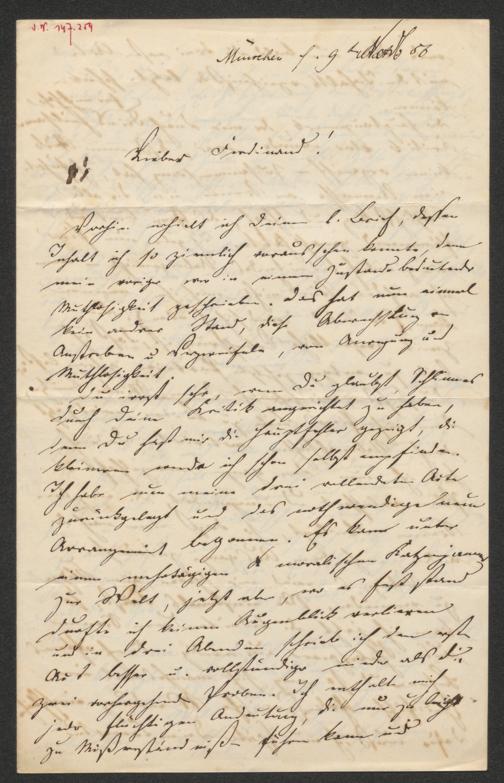 J.N. 147.259
München, 9
Lieber Ferdinand!
Vorhin erhielt ich deinen l. Brief, dessen
Inhalt ich so ziemlich voraussehen konnte, denn
mein voriger war in einem Zustande bedeutender
Muthlosigkeit geschrieben. Das hat nun einmal
kein andrer Stand, diese Abwechslung von
Anstreben u Verzweifeln, von Anregung und
Muthlosigkeit.
Du irrst sehr, wenn Du glaubst, Schlimmes
durch deine Kritik angerichtet zu haben,
denn Du hast mir die Hauptfehler gezeigt, die
kleineren werde ich schon selbst empfinden.
Ich habe nun meine drei vollendeten Acte
zurückgelegt und das nothwendige neue
Arrangement begonnen. Es kam unter
einem mehrtägigen moralischen Katzenjammer
zur Welt, jetzt aber, wo es fest stand
durfte ich keinen Augenblick verlieren
und in drei Abenden schrieb ich den ersten
Act besser u. vollständiger nieder als die
zwei vorhergehenden Proben. Ich enthalte mich
jeder flüchtigen Andeutung, die nur zu leicht
zu Mißverständnissen führen kann und